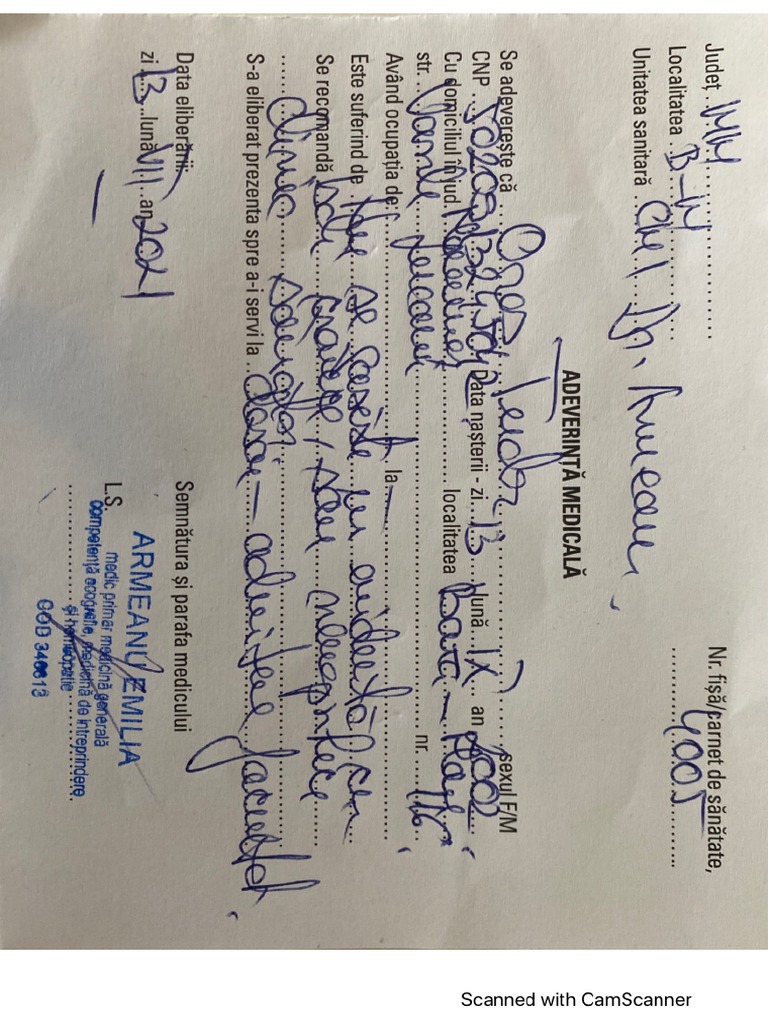 Județ MM
Localitatea B-M
Unitatea sanitară CMI Dr. Armeanu
Nr. fișă/carnet de sănătate,
4005
ADEVERINȚĂ MEDICALĂ
Se adeverește că Tudor sexul F/M
CNP Data nașterii - zi 13 lună IX an 2002
Cu domiciliul în jud. localitatea Baia - Mare
str. Vasile Lucaciu nr. 116
Având ocupația de: la
Este suferind de Nu se găsește în evidență cu
Se recomandă boli cronice / sau neuropsihice
clinic sănătos
S-a eliberat prezenta spre a-i servi la dosar - admitere facultate
Data eliberării:
zi 13 lună VII an 2021
Semnătura și parafa medicului
L.S.
ARMEANU EMILIA
medic primar medicină generală
competență ecografie, medicină de întreprindere
și homeopatie
COD 346613
Scanned with CamScanner